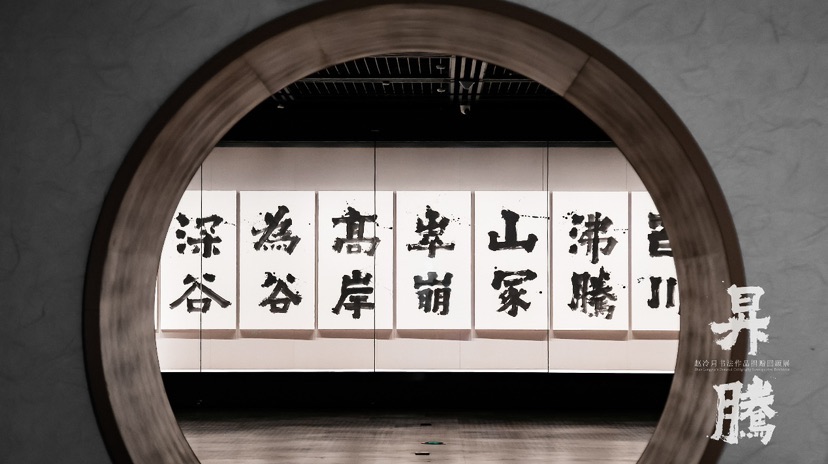 川
沸騰
山冢
崒崩
高岸
為谷
深谷
昇騰
赵冷月书法作品捐赠回顾展